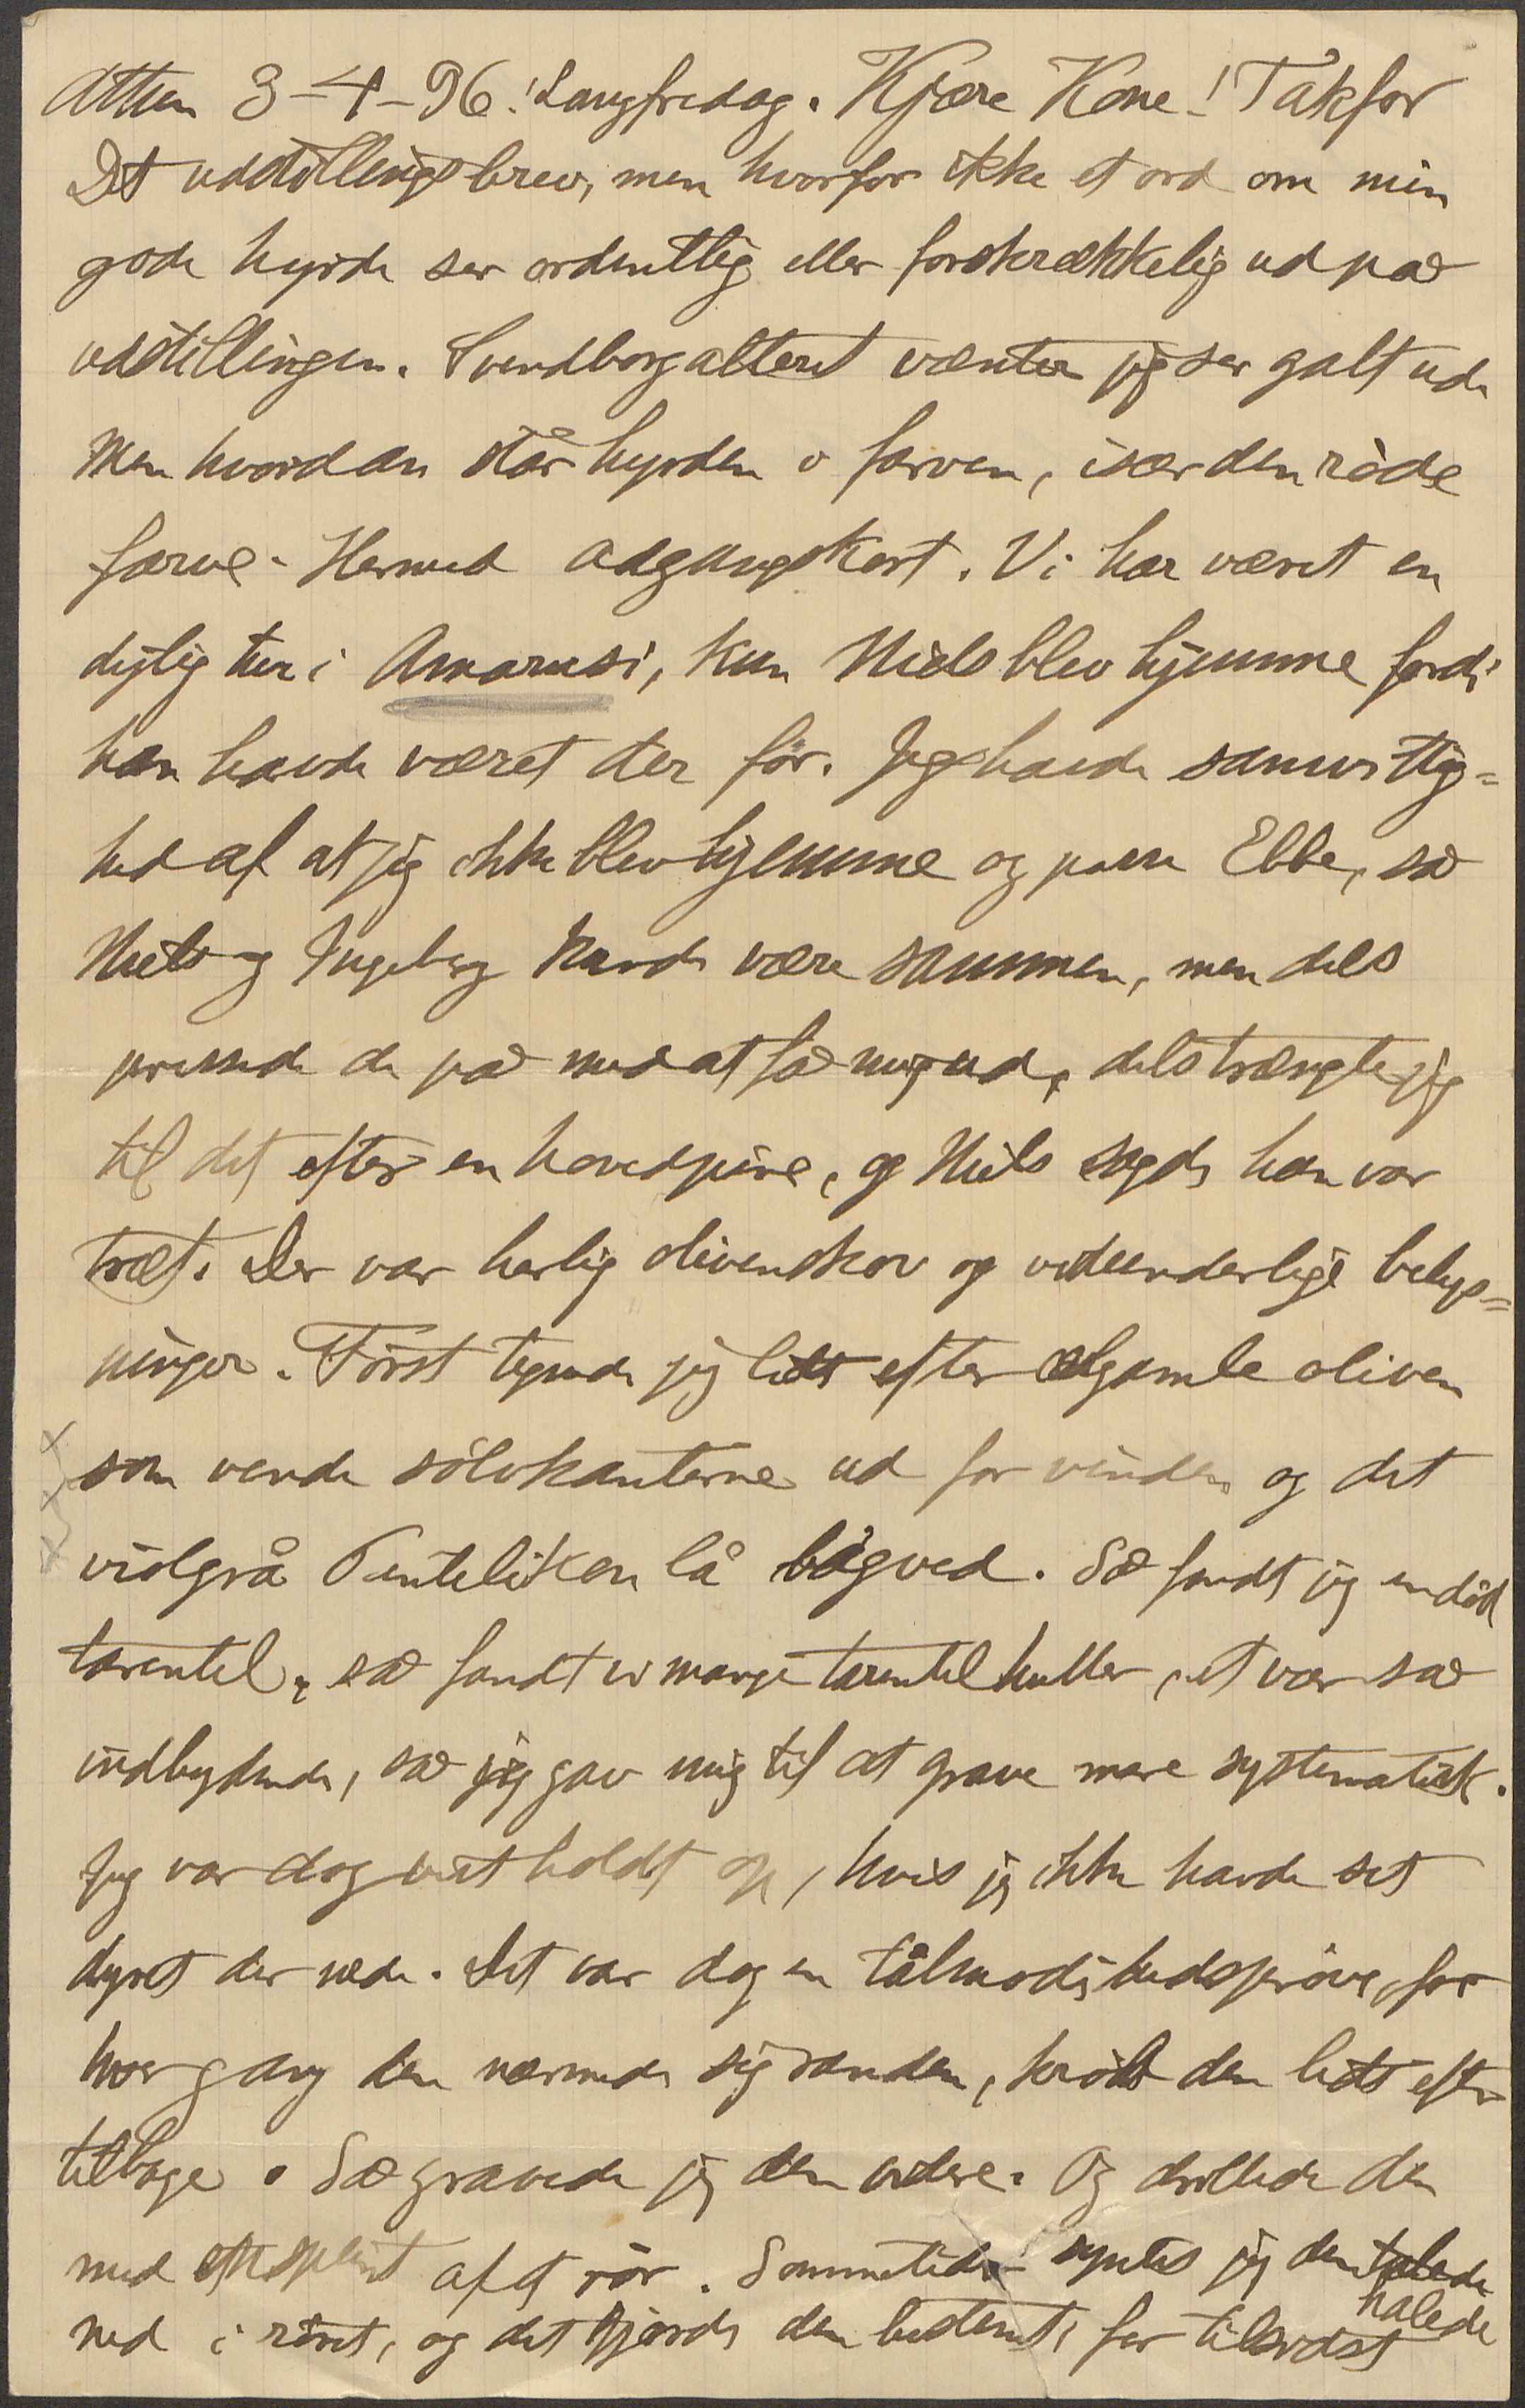 Athen 3-4-96. Langfredag. Kjære Kone! Tak for
Dit udstillingsbrev, men hvorfor ikke et ord om min
gode hyrde ser ordentlig eller forskrækkelig ud på
udstillingen. Svendborgalteret vænter jeg ser galt ud.
Men hvordan står hyrden i farven, især den røde
farve. Hermed adgangskort. Vi har været en
dejlig tur i Amarusi, kun Niels blev hjemme fordi
han havde været der før. Jeg havde samvittig=
hed af at jeg ikke blev hjemme og passe Ebbe, så
Niels og Ingeborg kunde være sammen, men dels
pressede de på med at få mig ud, dels trængte jeg
til det efter en hovedpine, og Niels sagde han var
træt. Der var herlig olivenskov og vidunderlige belys=
ninger. Først tegnede jeg lidt efter ælgamle oliven
som vende sølvkanterne ud for vinden og det
violgrå Penteliken lå bagved. Så fandt jeg en død
tarentel, så fandt vi mange tarentelhuller, et var så
indbydende, så jeg gav mig til at grave mere systematisk.
Jeg var dog vist holdt op, hvis jeg ikke havde set
dyret der nede. Det var dog en tålmodighedsprøve, for
hver gang den nærmede sig randen, krøb den lidt efter
tilbage. Så gravede jeg den videre. Og drillede den
med et splint af et rør. Sommetider syntes jeg den talede
halede
ned i røret, og det gjorde den bestemt, for tilsidst